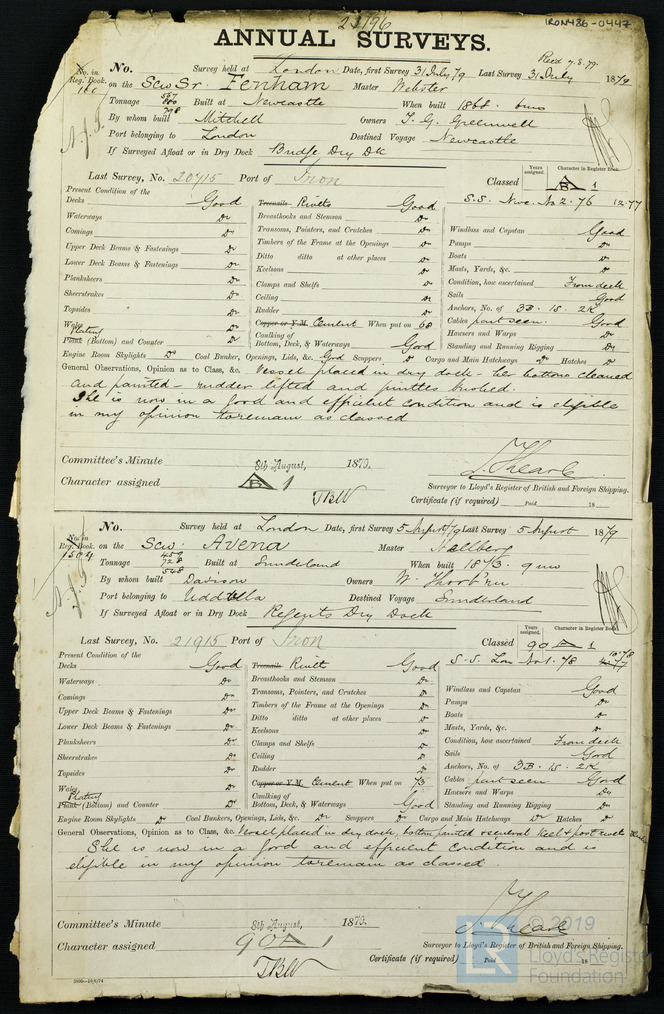 22196
IRON486-0447
ANNUAL SURVEYS.
Recd 7.8.79
No. in Reg. Book.
No. Survey held at London Date, first Survey 31 July/79 Last Survey 31 July 1879
on the Scw Sr. Fenham Master Webster
Tonnage Built at Newcastle When built 1868.
By whom built Mitchell Owners T. G. Greenwell
Port belonging to London Destined Voyage Newcastle
If Surveyed Afloat or in Dry Dock Bridge Dry Dk
Last Survey, No. 20715 Port of Iron Classed
Years assigned.
Character in Register Book.
B 1
S.S. Nwc. No 2. 76 12.77
Present Condition of the
Decks Good Treenails Rivets Good
Waterways Do Breasthooks and Stemson Do Windlass and Capstan Good
Comings Do Transoms, Pointers, and Crutches Do Pumps Do
Upper Deck Beams & Fastenings Do Timbers of the Frame at the Openings Do Boats Do
Lower Deck Beams & Fastenings Do Ditto ditto at other places Do Masts, Yards, &c. Do
Planksheers Do Keelsons Do Condition, how ascertained From deck
Sheerstrakes Do Clamps and Shelfs Do Sails Good
Topsides Do Ceiling Do Anchors, No. of 3B. 1S. 2K
Wales Do Rudder Do Cables part seen. Good
Plating Plank (Bottom) and Counter Do Copper or Y.M. Cement When put on 68 Hawsers and Warps Do
Caulking of Bottom, Deck, & Waterways Good Standing and Running Rigging Do
Engine Room Skylights Do Coal Bunker, Openings, Lids, &c. Good Scuppers Do Cargo and Main Hatchways Do Hatches Do
General Observations, Opinion as to Class, &c. Vessel placed in dry dock - her bottom cleaned
and painted - rudder lifted and pintles bushed.
She is now in a good and efficient condition and is eligible
in my opinion to remain as classed
Committee's Minute 8th August, 1879.
Character assigned B 1
TBW
Surveyor to Lloyd's Register of British and Foreign Shipping.
Certificate (if required) Paid 18
No. in Reg. Book.
No. Survey held at London Date, first Survey 5 August/79 Last Survey 5 August 1879
on the Scw. Avena Master Hallberg
Tonnage Built at Sunderland When built 1873.
By whom built Davison Owners
Port belonging to Uddvlla Destined Voyage Sunderland
If Surveyed Afloat or in Dry Dock Regents Dry Dock
Last Survey, No. 21915 Port of Iron Classed 90 A 1
Years assigned.
Character in Register Book.
S.S. Lon No 1. 78 10.78
Present Condition of the
Decks Good Treenails Rivets Good
Waterways Do Breasthooks and Stemson Do Windlass and Capstan Good
Comings Do Transoms, Pointers, and Crutches Do Pumps Do
Upper Deck Beams & Fastenings Do Timbers of the Frame at the Openings Do Boats Do
Lower Deck Beams & Fastenings Do Ditto ditto at other places Do Masts, Yards, &c. Do
Planksheers Do Keelsons Do Condition, how ascertained From deck
Sheerstrakes Do Clamps and Shelfs Do Sails Good
Topsides Do Ceiling Do Anchors, No. of 3B. 1S. 2K
Wales Do Rudder Do Cables part seen Good
Plating Plank (Bottom) and Counter Do Copper or Y.M. Cement When put on 73 Hawsers and Warps Do
Caulking of Bottom, Deck, & Waterways Good Standing and Running Rigging Do
Engine Room Skylights Do Coal Bunkers, Openings, Lids, &c. Do Scuppers Do Cargo and Main Hatchways Do Hatches Do
General Observations, Opinion as to Class, &c. Vessel placed in dry dock, bottom painted
She is now in a good and efficient condition and is
eligible in my opinion to remain as classed.
Committee's Minute 8th August, 1879.
Character assigned 90 A 1
TBW
Surveyor to Lloyd's Register of British and Foreign Shipping.
Certificate (if required) Paid 18
LR
© 2019
Lloyd's Register
Foundation